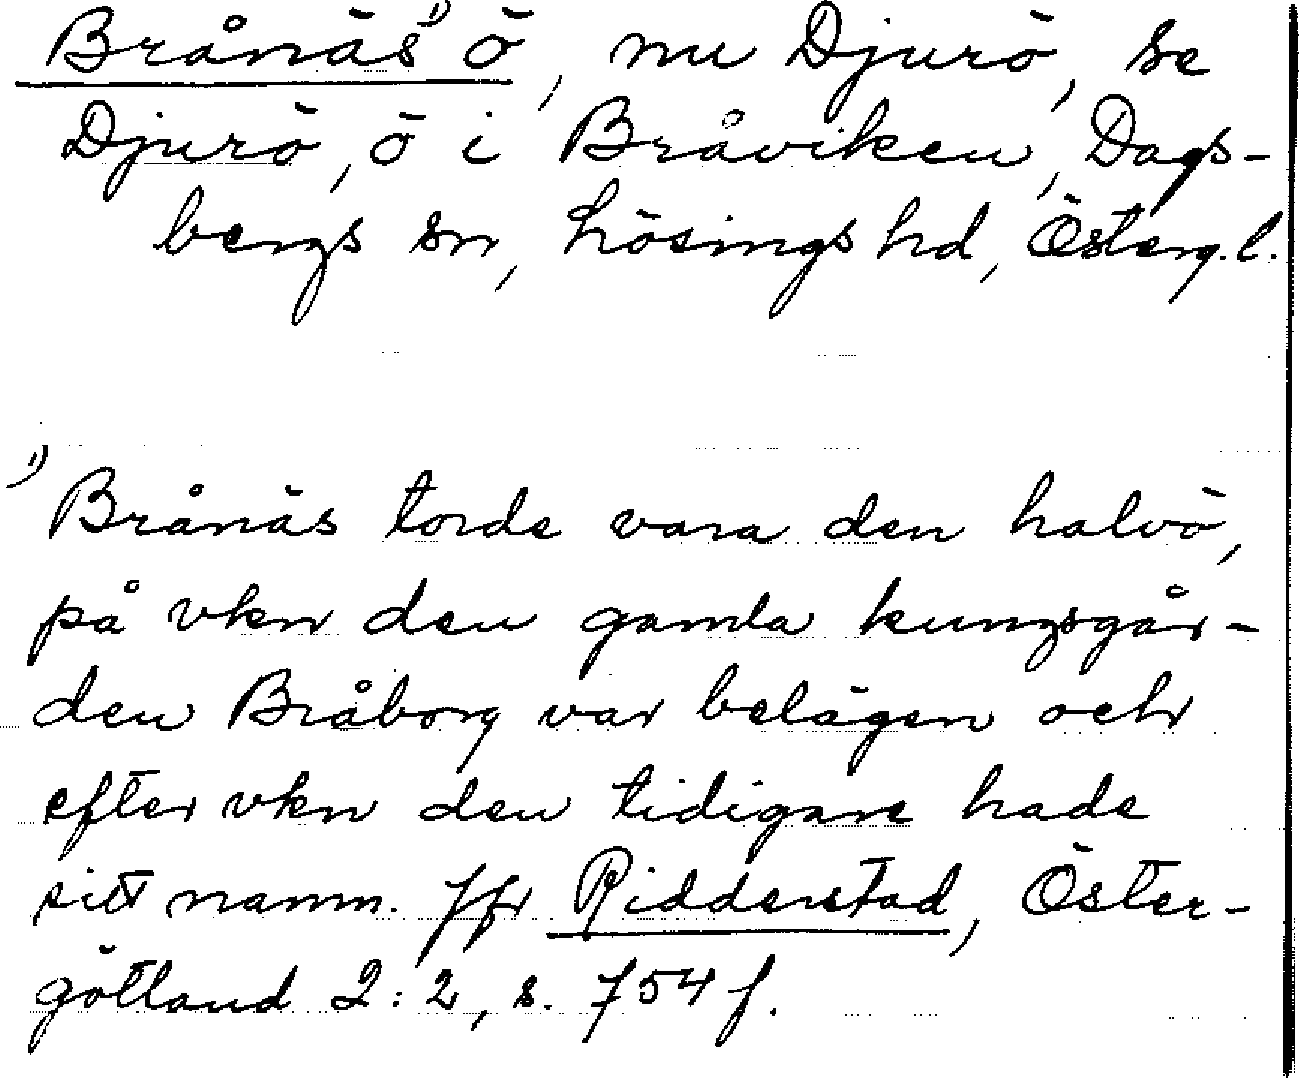 Brånäs¹⁾ ö, nu Djurö, se
Djurö, ö i Bråviken, Dags-
bergs sn, Lösings hd, Österg.l.
¹⁾ Brånäs torde vara den halvö,
på vkn den gamla kungsgår-
den Bråborg var belägen och
efter vkn den tidigare hade
sitt namn. Jfr Ridderstad, Öster-
götland 2:2, s. 754 f.